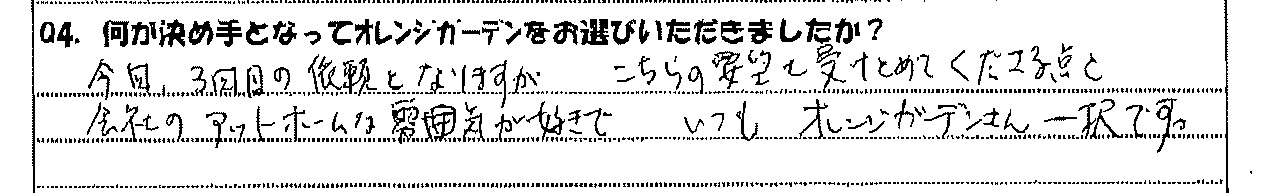 Q4. 何が決め手となってオレンジガーデンをお選びいただきましたか?
今回、3回目の依頼となりますが こちらの要望も受けとめてくださる点と
会社のアットホームな雰囲気が好きで いつも オレンジガーデンさん一択です。